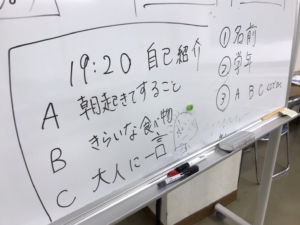 19:20 自己紹介
A 朝起きてすること
B きらいな食べ物
C 大人に一言
① 名前
② 学年
③ A B C